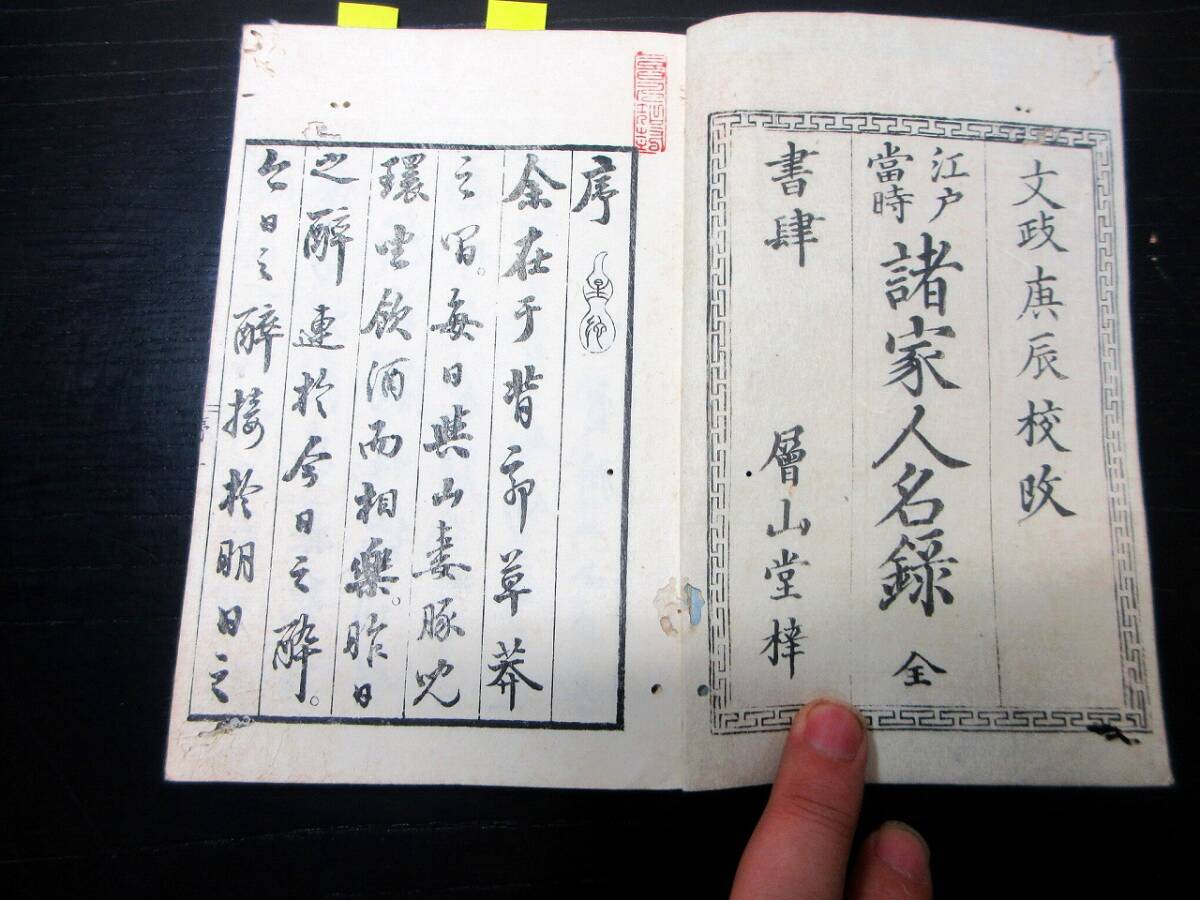 文政庚辰校改
江戸
當時
諸家人名錄 全
書肆 層山堂梓
序
余在于背郭草莽
之間。每日與山妻豚兒
環坐飲酒而相樂。昨日
之醉連於今日之醉。
今日之醉接於明日之